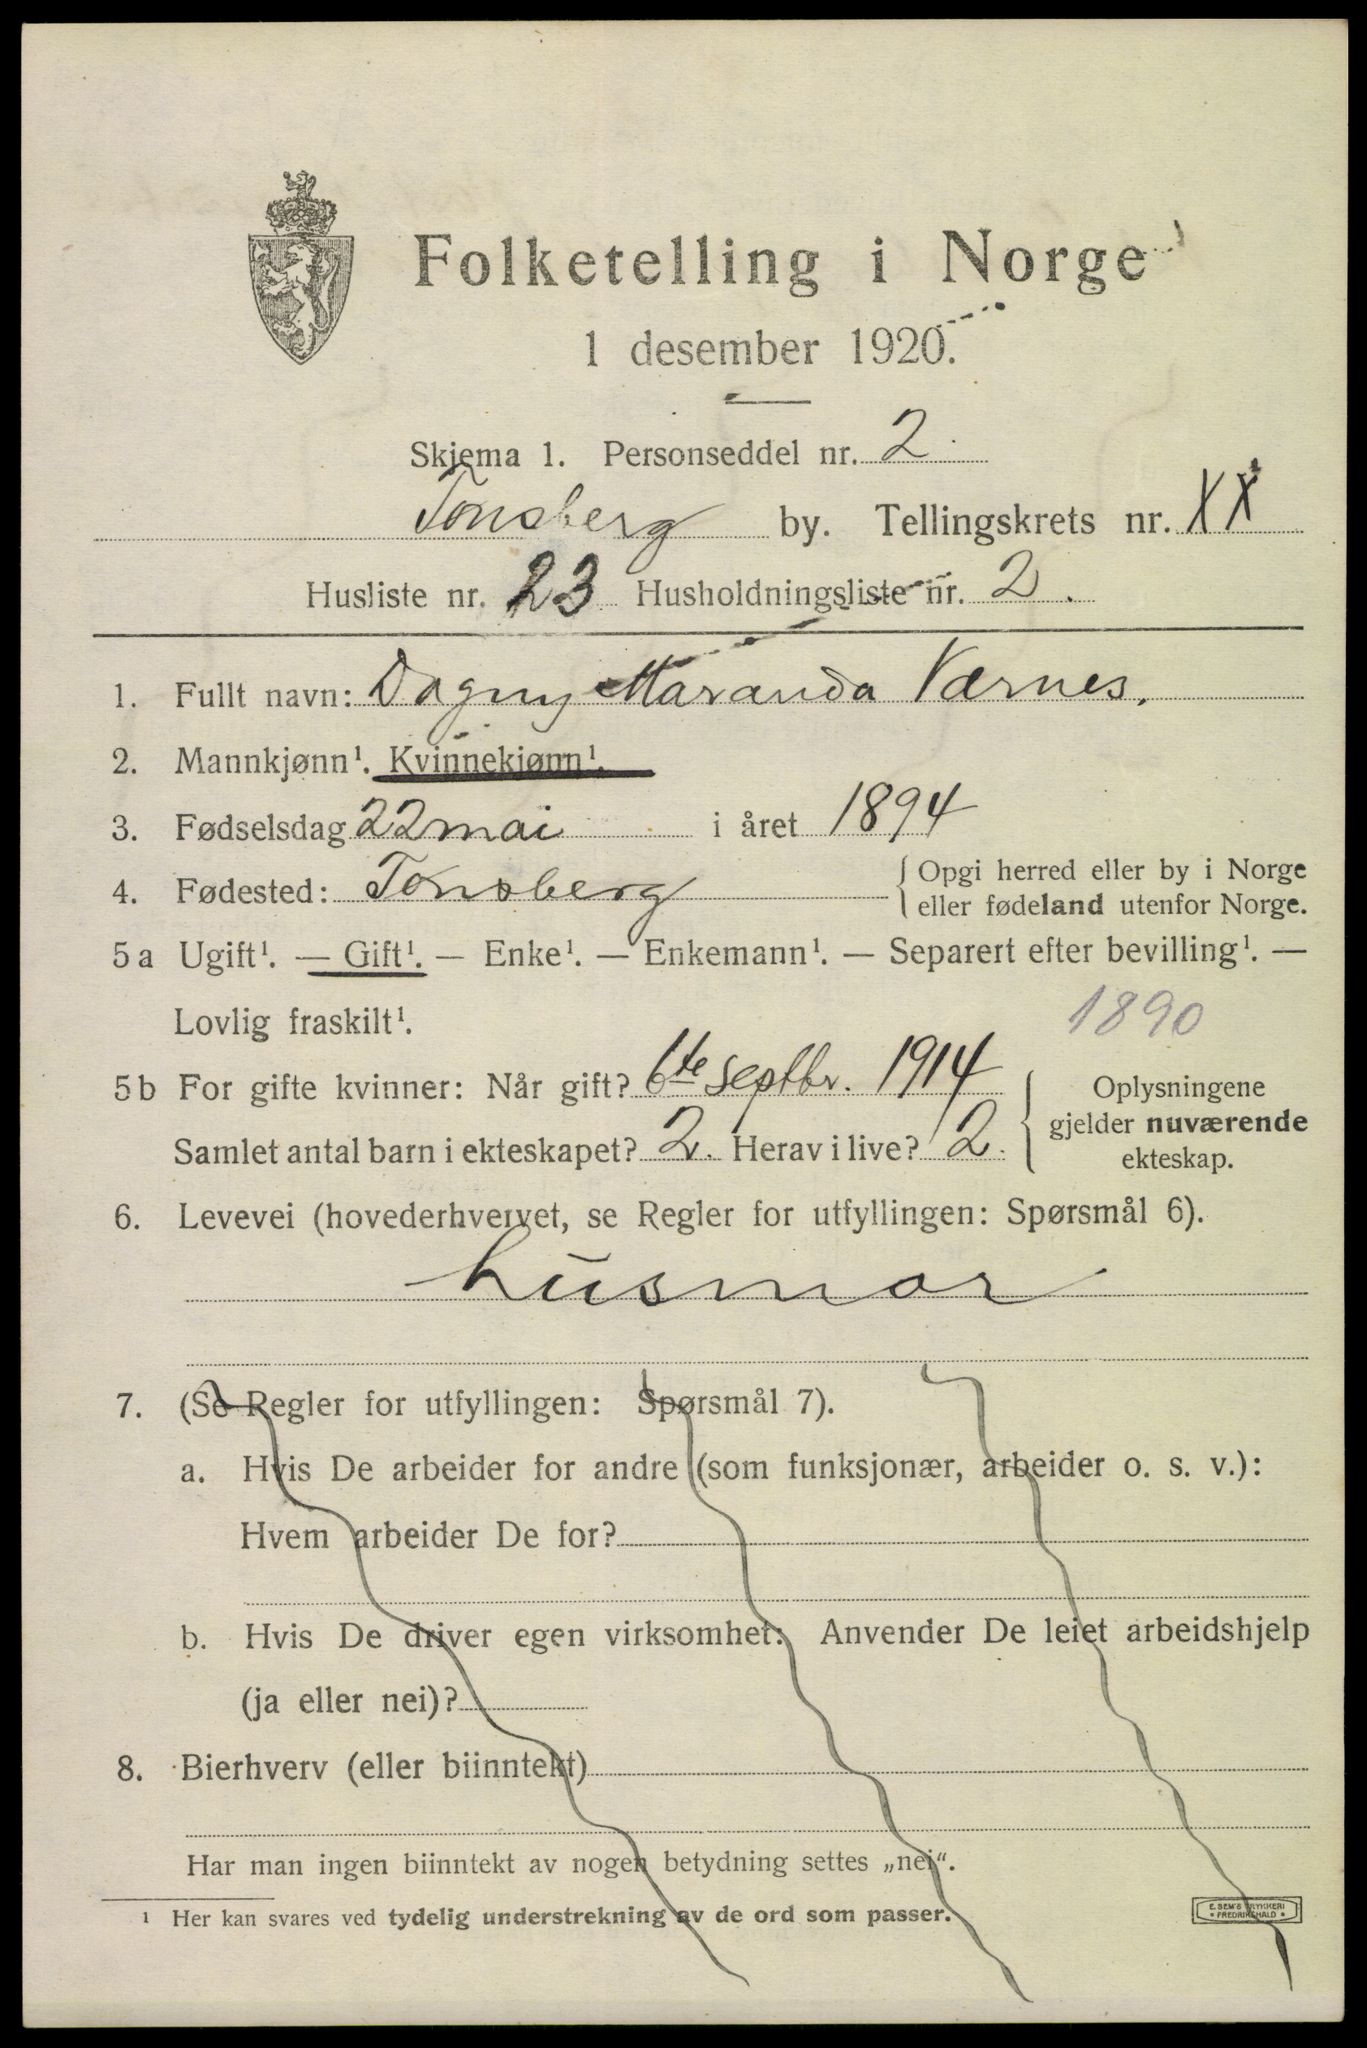 Folketelling i Norge
1 desember 1920.
Skjema 1. Personseddel nr. 2
Tønsberg by. Tellingskrets nr. XX
Husliste nr. 23 Husholdningsliste nr. 2.
1. Fullt navn: Dagny Maranda Værnes.
2. Mannkjønn¹. Kvinnekjønn¹.
3. Fødselsdag 22 mai i året 1894
4. Fødested: Tønsberg { Opgi herred eller by i Norge
eller fødeland utenfor Norge.
5a Ugift¹. — Gift¹. — Enke¹. — Enkemann¹. — Separert efter bevilling¹. —
Lovlig fraskilt¹.
1890
5b For gifte kvinner: Når gift? 6te septbr. 1914 { Oplysningene
gjelder nuværende
ekteskap.
Samlet antal barn i ekteskapet? 2. Herav i live? 2.
6. Levevei (hovederhvervet, se Regler for utfyllingen: Spørsmål 6).
husmor
7. (Se Regler for utfyllingen: Spørsmål 7).
a. Hvis De arbeider for andre (som funksjonær, arbeider o. s. v.):
Hvem arbeider De for?
b. Hvis De driver egen virksomhet: Anvender De leiet arbeidshjelp
(ja eller nei)?
8. Bierhverv (eller biinntekt)
Har man ingen biinntekt av nogen betydning settes „nei“.
¹ Her kan svares ved tydelig understrekning av de ord som passer.
E. SEM'S TRYKKERI
• FREDRIKSHALD •